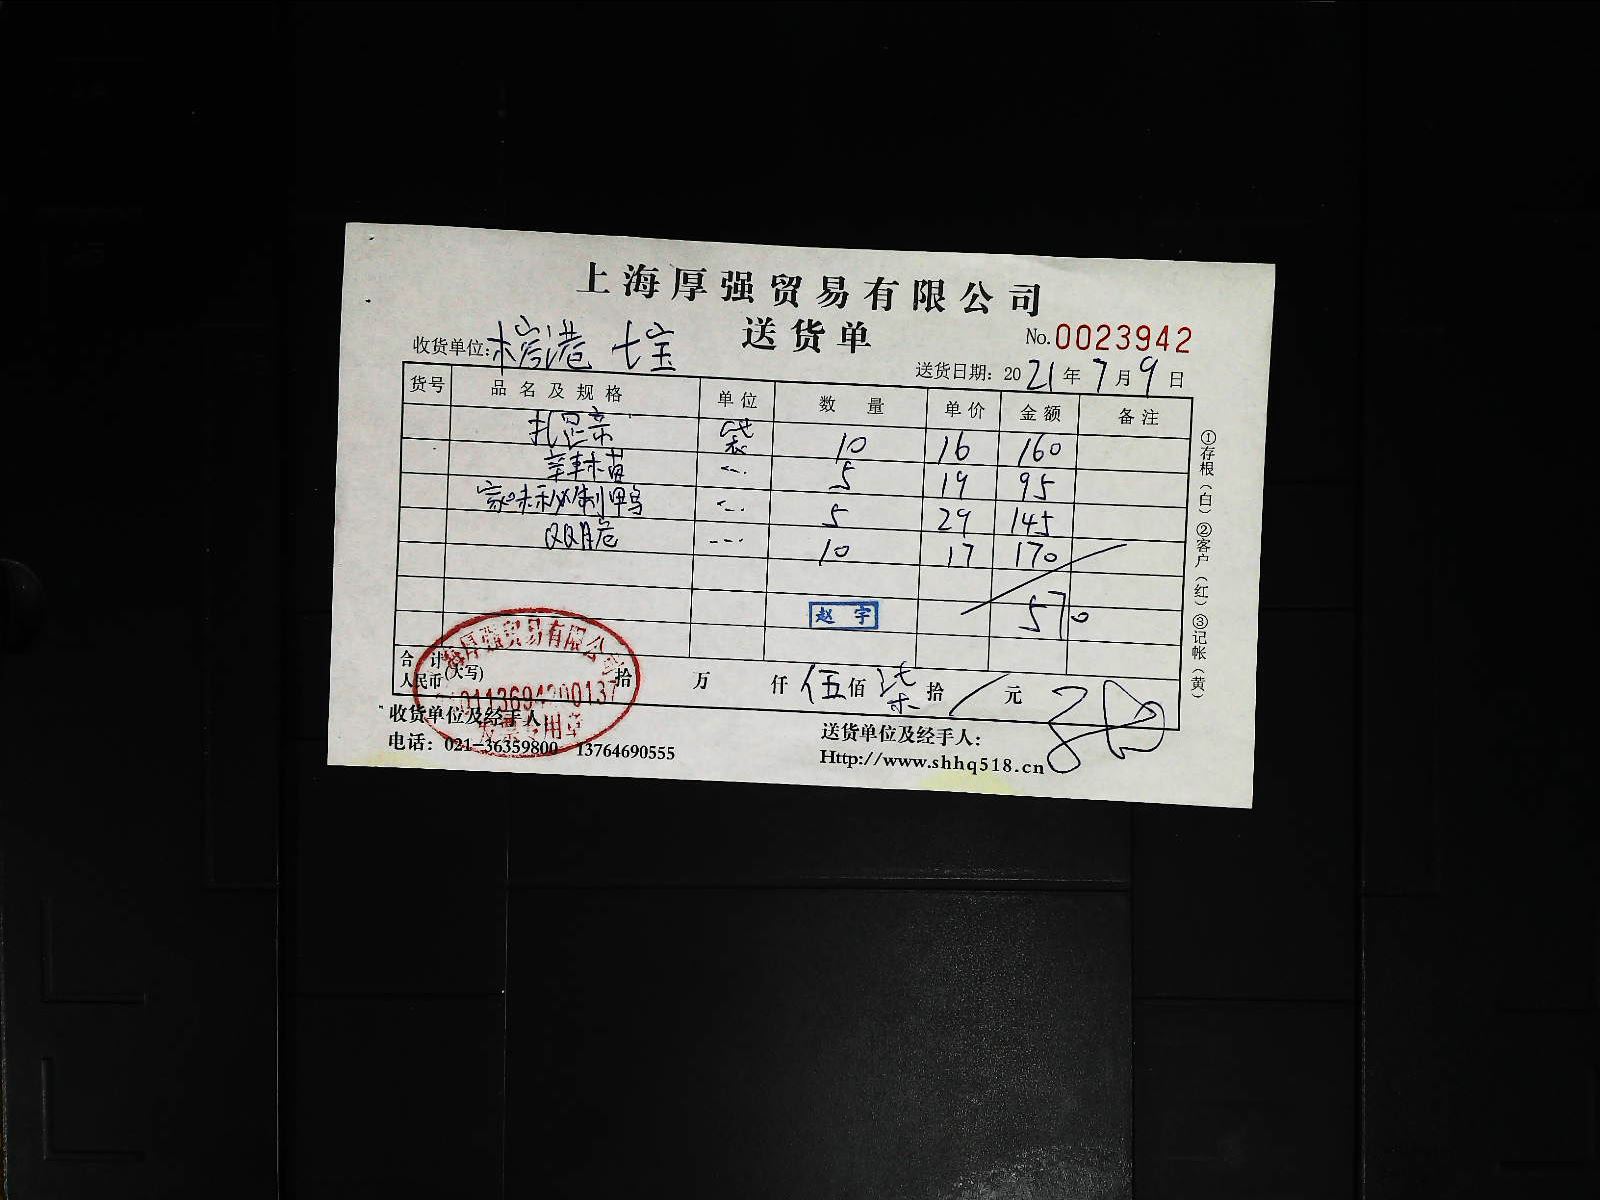 上海厚强贸易有限公司
送货单
No.0023942
收货单位: 榕港 七宝
送货日期: 2021年7月9日
货号 品名及规格 单位 数量 单价 金额 备注
袋 10 16 160
5 19 95
家味秘制鸭 5 29 145
双脆 10 17 170
570
赵宇
合计人民币(大写) 拾 万 仟 伍佰 柒拾 / 元
收货单位及经手人:
送货单位及经手人:
电话: 021-36359800 13764690555
Http://www.shhq518.cn
①存根(白)②客户(红)③记帐(黄)
海厚强贸易有限公司
发票专用章